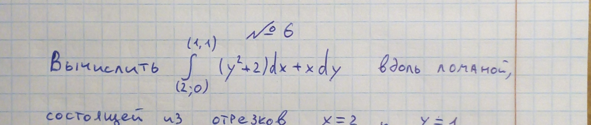 № 6
Вычислить ∫_{(2;0)}^{(1,1)} (y²+2)dx + xdy вдоль ломаной,
состоящей из отрезков x=2 и y=1